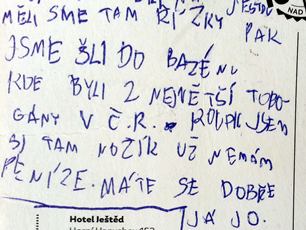 MĚLI SME TAM ŘÍZKY
PAK
JSME ŠLI DO BAZÉNU
KDE BYLI 2 NEJVĚTŠÍ TOBO-
GÁNY V Č.R. KOUPIL JSEM
SI TAM NOŽÍK UŽ NEMÁM
PENÍZE. MÁTE SE DOBŘE
JÁ JO.
NAD
Hotel Ještěd